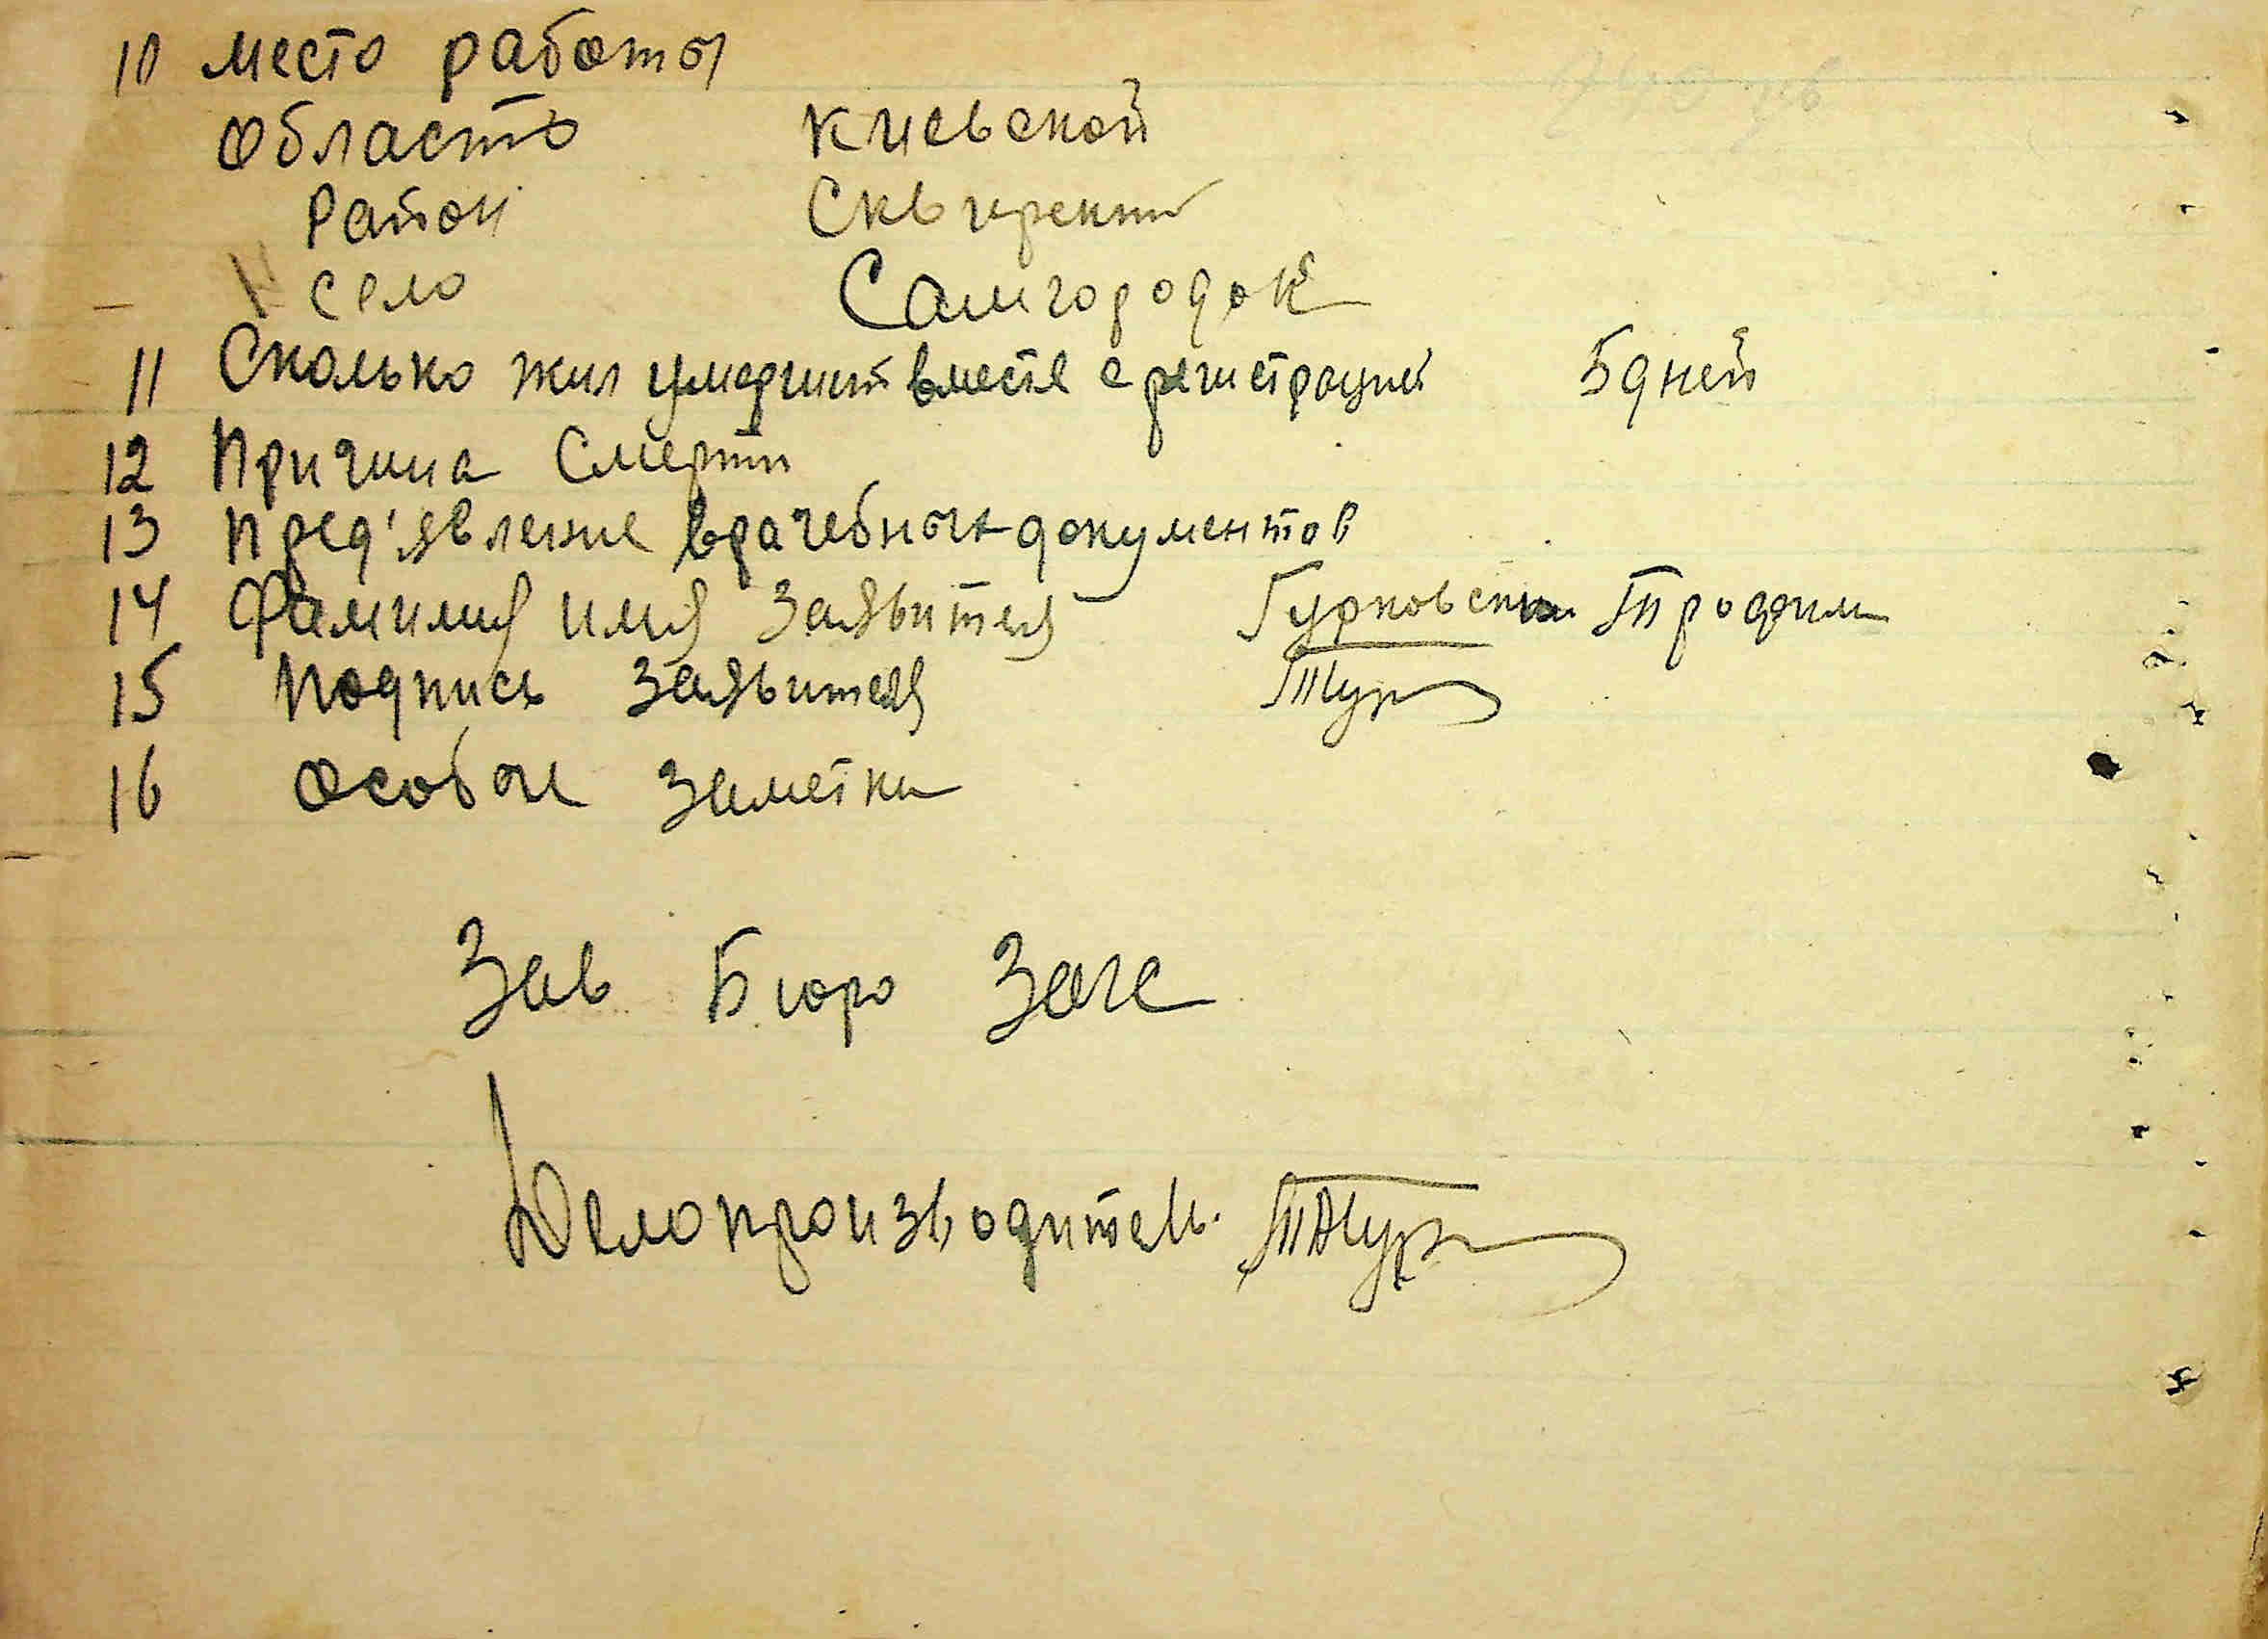 10 место работы
Область Киевской
Район Сквирский
село Самгородок
11 Сколько жил умерший вместе с регистрацией 5 дней
12 Причина Смерти
13 Пред'явление врачебных документов
14 Фамилия имя Заявителя Гурковский Трофим
15 Подпись Заявителя
16 Особые Заметки
Зав Бюро Загс
Делопроизводитель